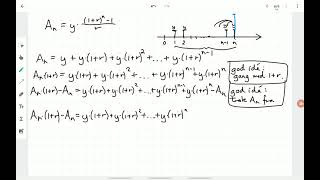 Aₙ = y · ((1+r)ⁿ - 1)/r
0 1 2 n-1 n
Aₙ = y + y·(1+r) + y·(1+r)² + ... + y·(1+r)ⁿ⁻¹
Aₙ(1+r) = y(1+r) + y·(1+r)² + ... + y(1+r)ⁿ⁻¹ + y(1+r)ⁿ
god idé: gang med 1+r.
Aₙ(1+r) - Aₙ = y·(1+r) + y·(1+r)² + ... + y(1+r)ⁿ⁻¹ + y(1+r)ⁿ - Aₙ
god idé: træk Aₙ fra
Aₙ·(1+r) - Aₙ = y·(1+r) + y·(1+r)² + ... + y(1+r)ⁿ